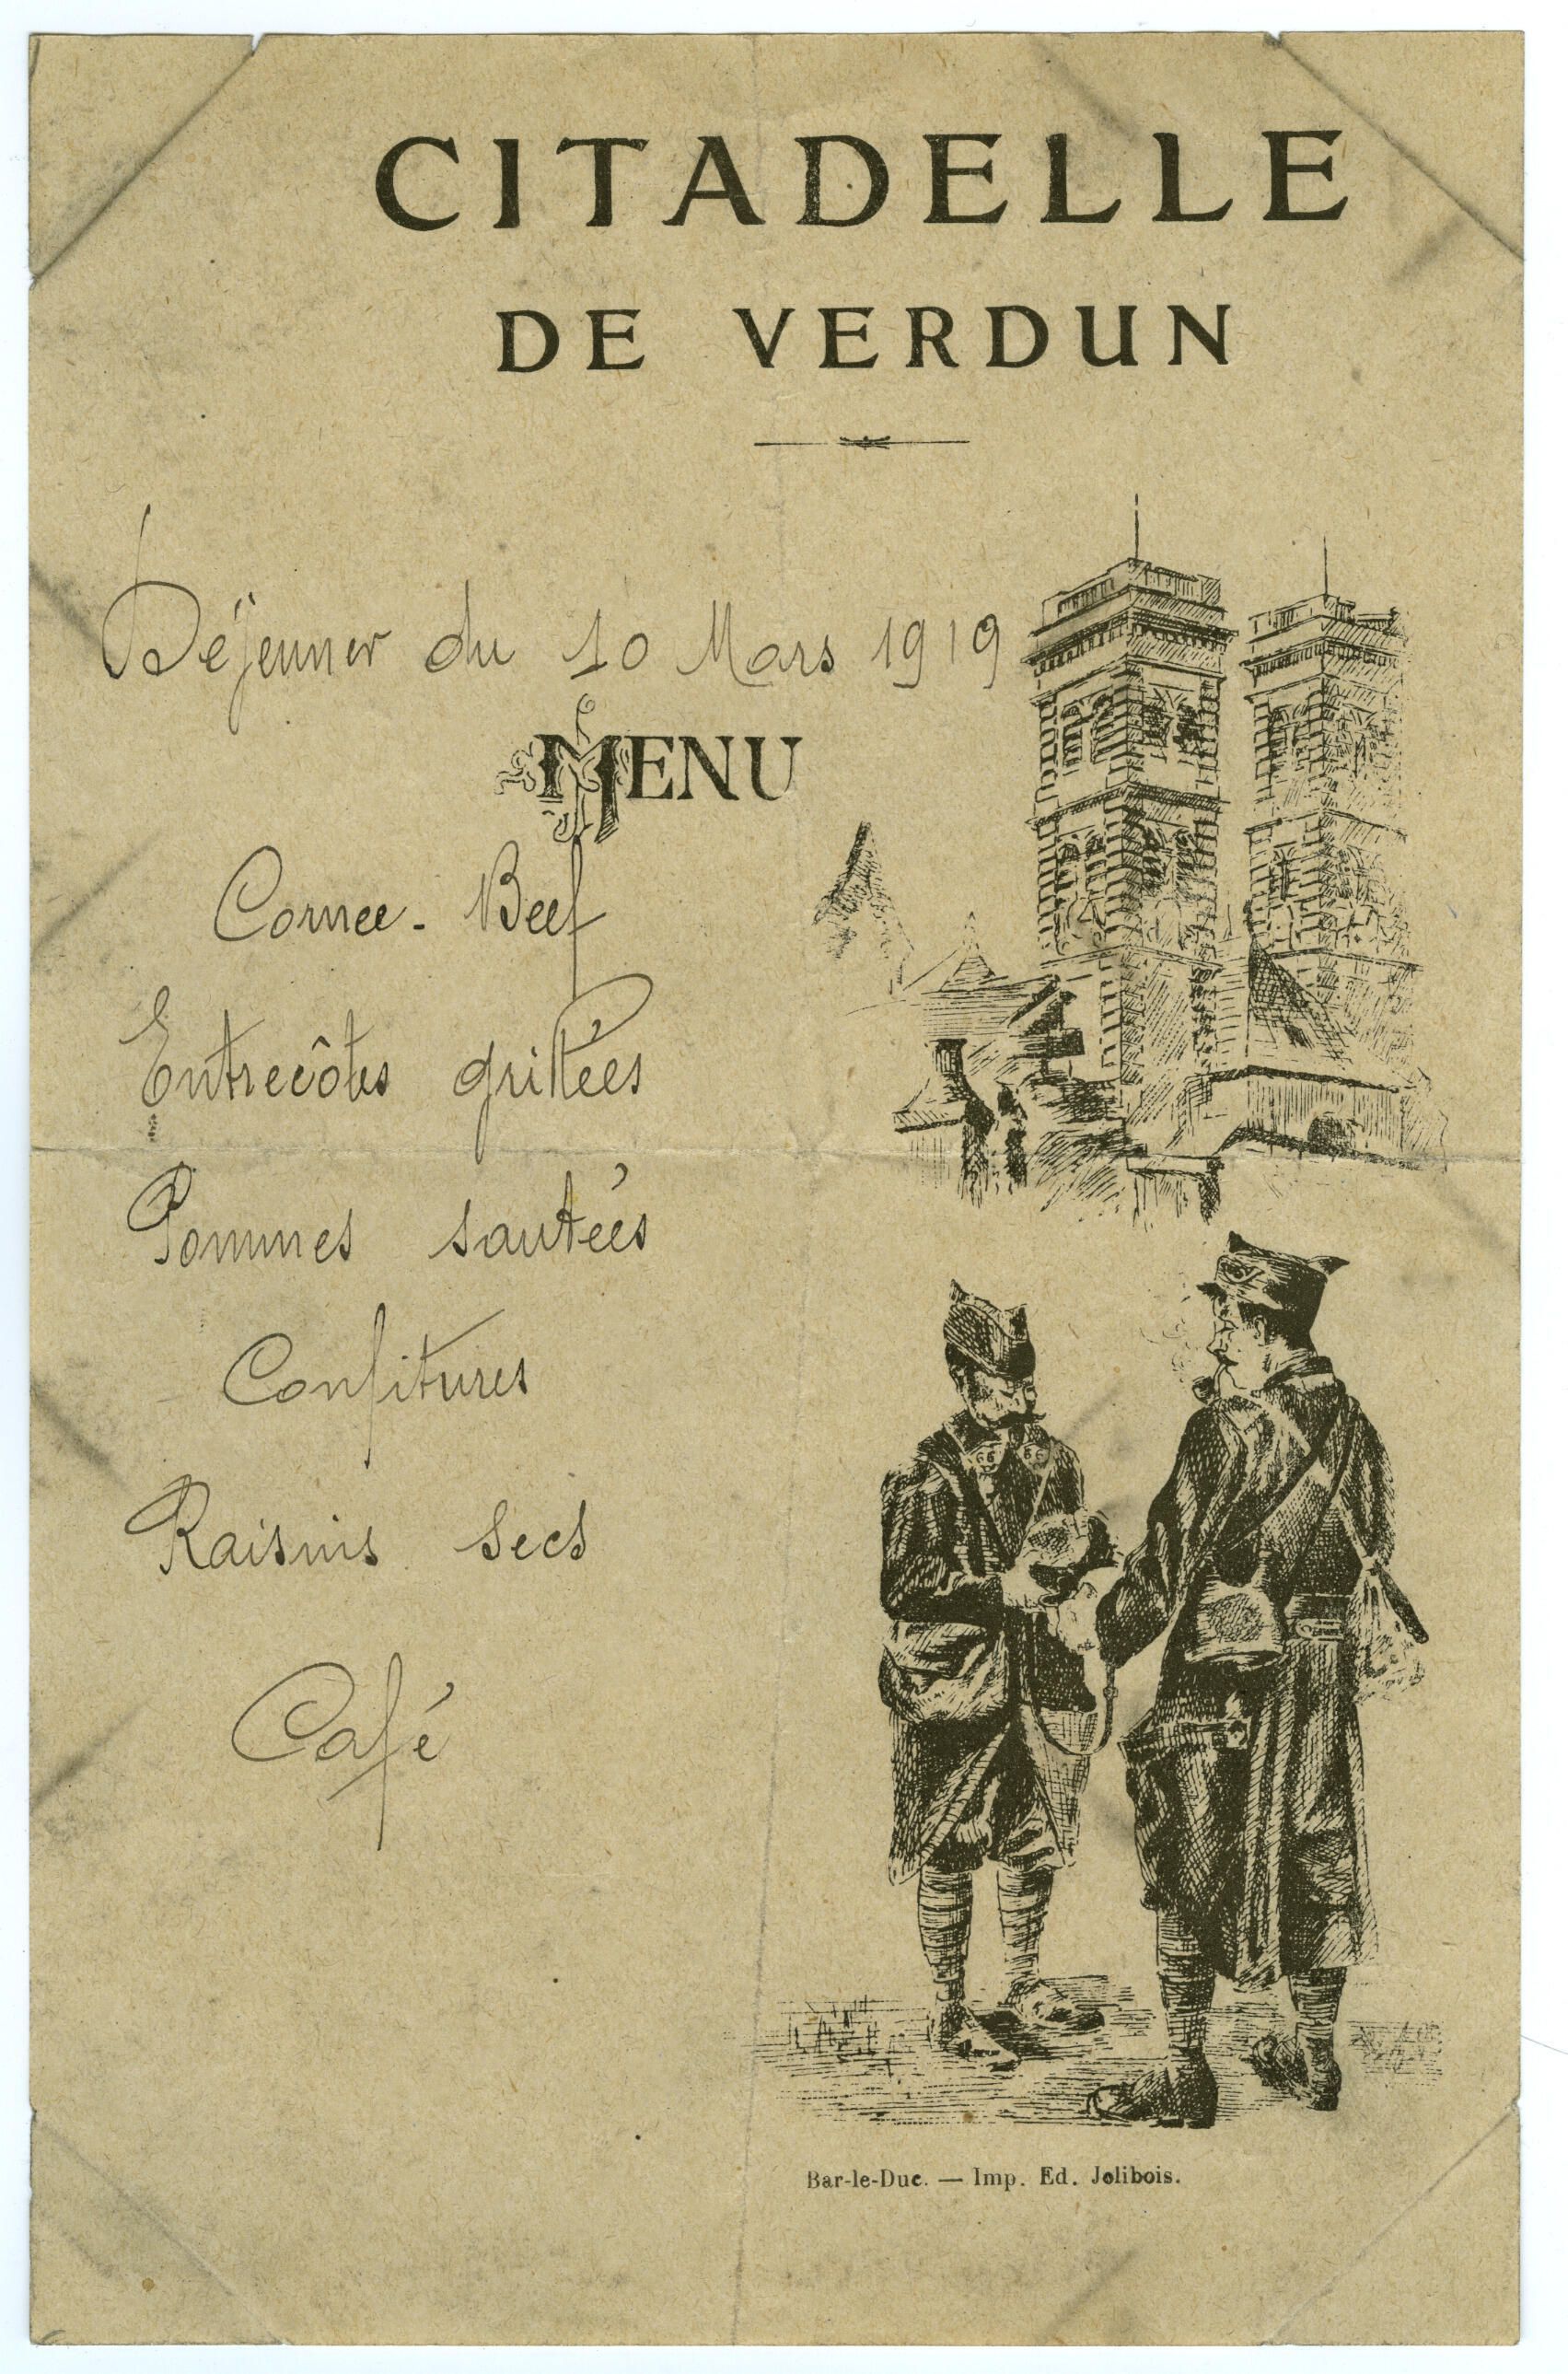 CITADELLE
DE VERDUN
Déjeuner du 10 Mars 1919
MENU
Cornee-Beef
Entrecôtes grillées
Pommes sautées
Confitures
Raisins secs
Café
66 66
Bar-le-Duc. — Imp. Ed. Jolibois.